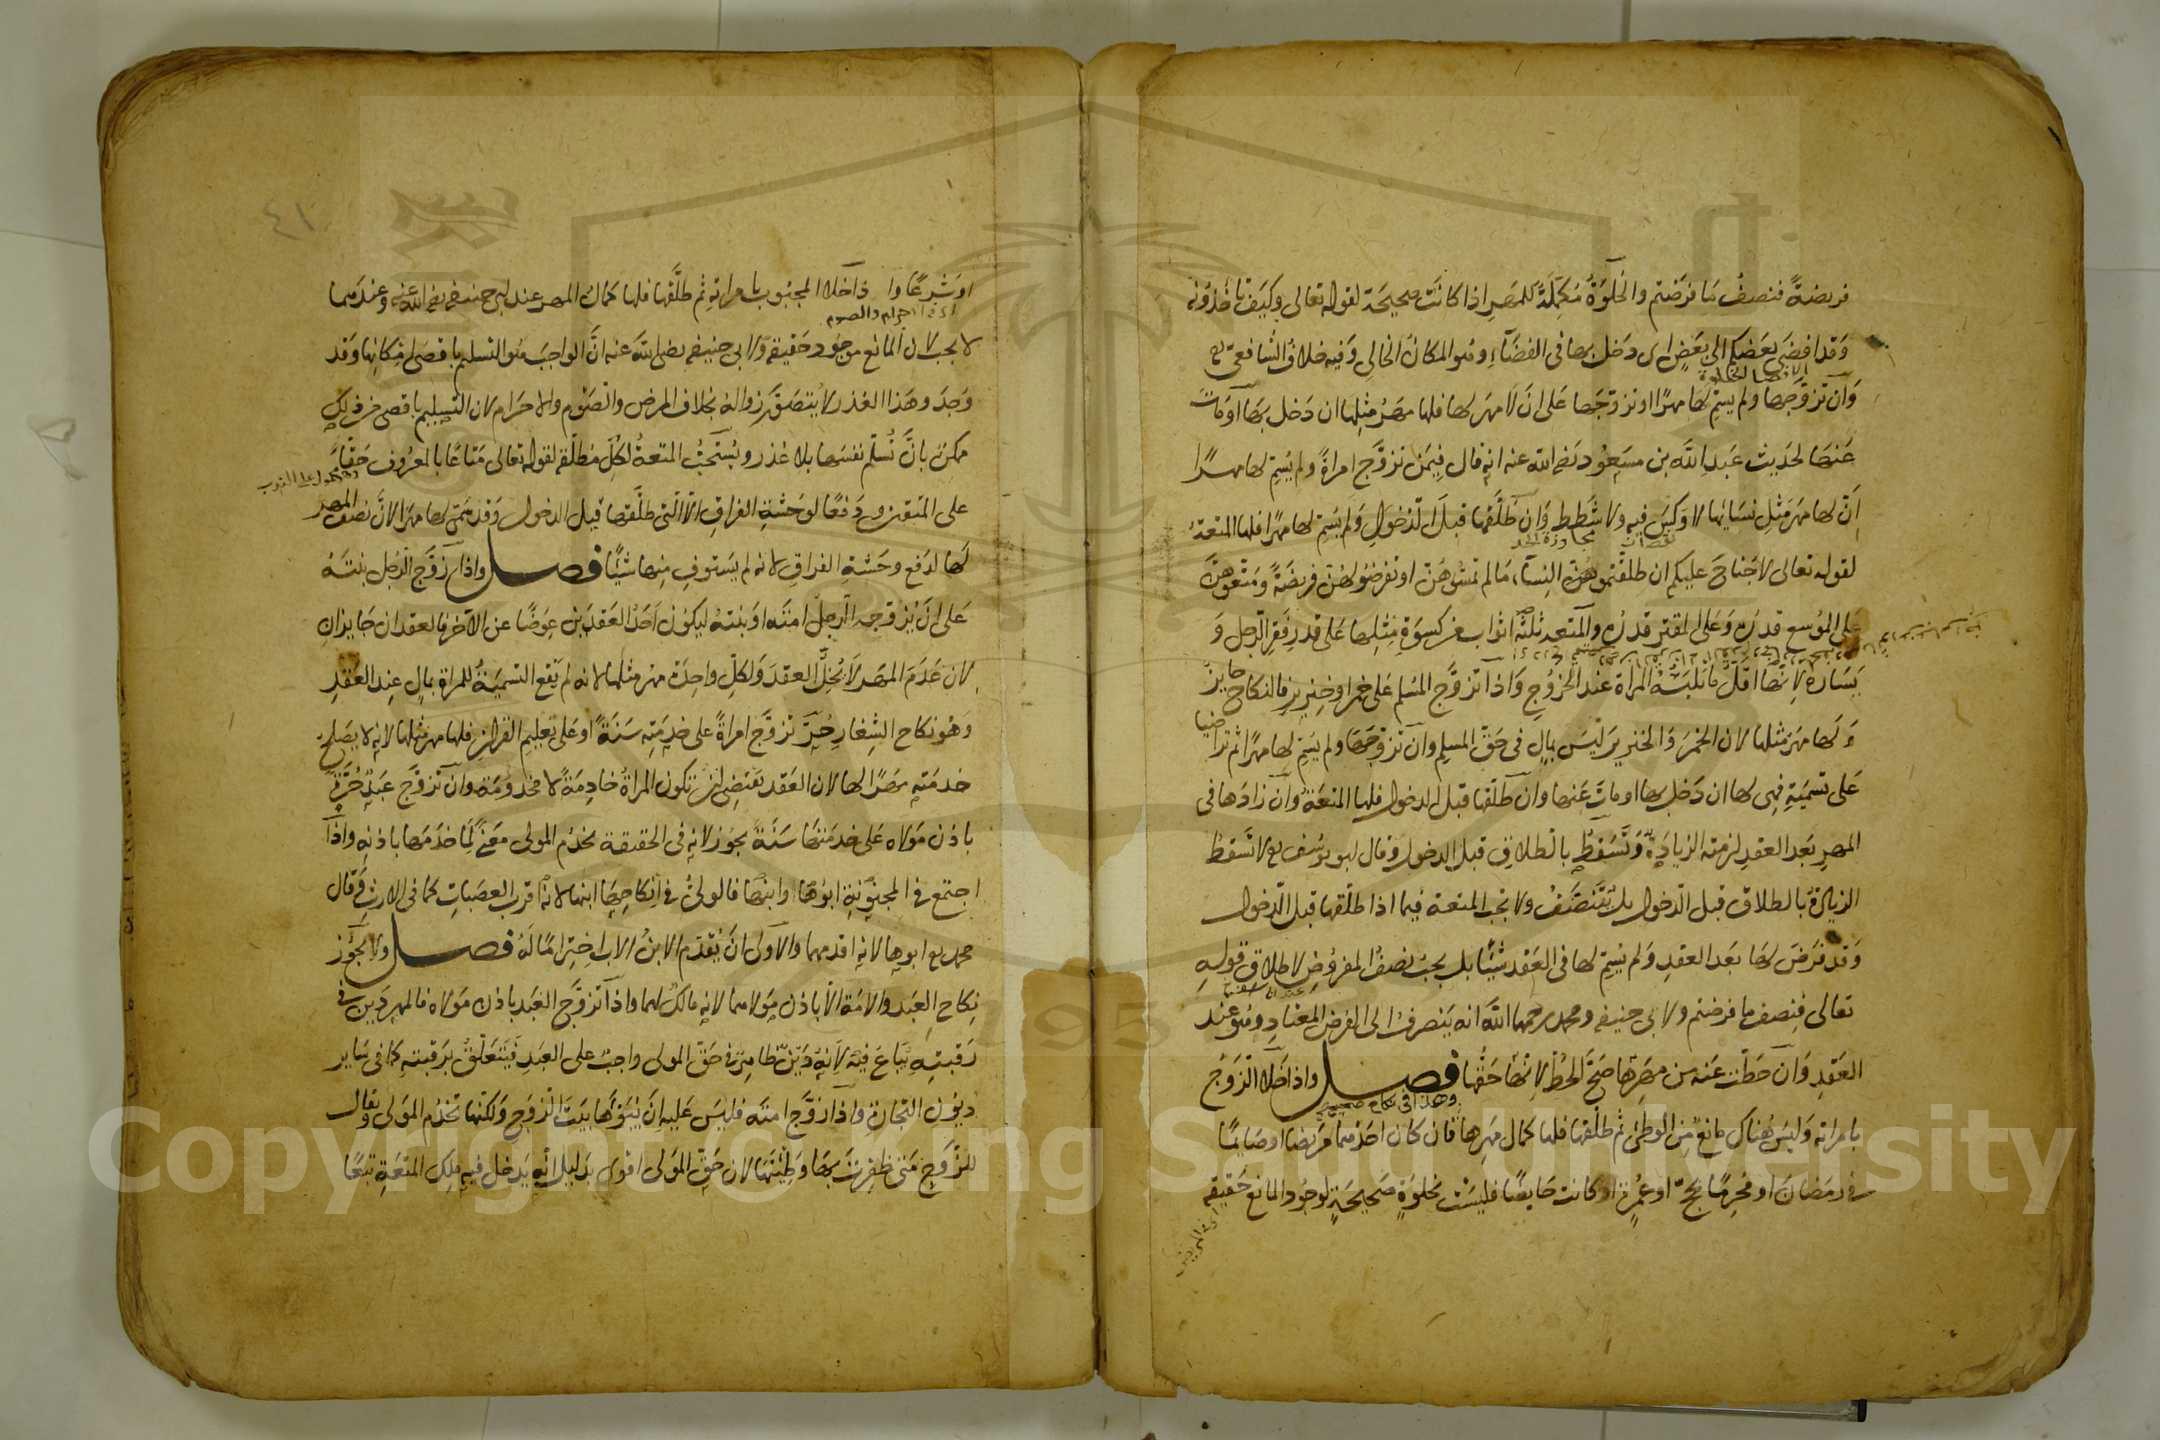 فريضةً فنصفُ مَا فرَضتم والخلوَةُ مُكمِّلَةٌ للمَهرِ اذا كانَتْ صحيحَة لقوله تعالى وكيَفَ تاخذُونه
وَقد افضَى بعَضكم الى بعَضٍ اى دخَل بها فى الفضَاءِ وهو المكانُ الخالى وَفيه خلافُ الشافعىّ
وَان تزوَّجها ولم يسَمّ لها مهرًا او تزوّجَها على انَ لاَ مهرَ لها فلها مهَرُ مثِلها ان دَخل بهَا اوَ مَاتَ
عَنهَا لحَديث عَبد اللهِ بن مسَعُود رضى الله عنه انه قال فيمَن تزوَّج امراةً ولم يُسَمّ لها مهرًا
اَنّ لهَا مهرَ مَثِل نسَائِها لا وَكسَ فيهِ ولا شَطَط وَان طَلّقها قبلَ الدّخولِ وَلم يسَمّ لها مهرًا فلها المتعَة
نقصان مجاوزة الحد
لقوله تعالى لا جُناحَ عليكم ان طلقتموهنّ النِسآءَ مَا لم تمسّوهُنّ او تفرضُوا لهُنّ فريضَةً ومَتّعوهنّ
عَلى الموُسع قدرُه وَعَلى المقتر قدرُه والمتعَة ثلثة اثواب من كسوَةِ مِثلِها عَلى قدرِ فقر الرّجل وَ
يَسَاره لانهَّا اقلّ مَا تلبَسُهُ المراة عند الخرُوجِ وَاذا تزوَّج المسُلم عَلى خمر او خِنزيرٍ فالنكاح جايزٌ
وَلها مهَرُ مثلها لان الخمرَ وَالخنزيرَ ليَسَ بمالٍ فى حَقّ المسلم وان تزوّجَها ولم يسَمّ لها مهرًا ثم تراضيا
عَلى تسميَةٍ فهى لها ان دَخل بها او ماتَ عَنها وان طلّقها قبل الدخول فلها المتعَة وان زادَها فى
المهرِ بعَد العقدِ لزمته الزيادَةُ وَتَسُقطُ بالطلاقِ قبل الدخول وَقال ابو يوسُف لا تَسقطُ
الزيادةُ بالطلاق قبل الدّخول بل تَتنصَّفُ ولا تجب المتعة فيما اذا طلّقها قبل الدّخول
وَقد فرَضَ لهَا بعَد العقدِ وَلم يُسمّ لها فى العَقد شيئًا بل يجبُ نصفُ المفرُوض لاطلاق قولِه
تعالى فنصف ما فرضتم ولابى حنيفة ومحمد رحمهما الله انه يَنصرفُ الى الفرض المعتادِ وهُو عند
العَقدِ وَان حَطّت عَنه من مهرِها صَحَّ الحَطّ لانه حَقُّها فصل واذا خَلا الزّوجُ
بامراته وَليسَ هُناك مانعٌ من الوطئ ثم طلّقها فلها كمال مَهرها فان كان احَدُهما مَريضًا او صَايمًا
فى رمَضان او محُرِمًا بحَجّ او عُمرةٍ او كانت حَايضًا فليسَت بخلوَةٍ صَحيحَةٍ لوجُود المانع حَقيقة
اى فى المريض
٤١
او شرعًا وا ذا خلا المجبُوب بامراتهِ ثم طلّقها فلها كمالُ المهرِ عند ابى حنيفة رضى الله عنه وعندهما
اى فى الاحرام والصوم
لا يجب لان المانعَ موجُود حَقيقة ولابى حنيفة رضى الله عنه انّ الواجَب هو التسليم باقصَى امكانها وَقد
وَجدَ وهَذا العُذر لا يُتصَوّر زواله بخلاف المرض والصَّوم والاحرَام لان التسليم باقصى من ذلك
ممكنٌ بانّ تُسلّم نفسَها بلا عُذر ويُستَحبُّ المتعةُ لكلّ مطلّقة لقوله تعالى مَتاعًا بالمعرُوف حَقًّا
على المتقين وَدَفعًا لوَحشةِ الفراقِ الاّ التى طلَّقها قبل الدخول وَقد سَمّى لها مهرًا لانّ نصف المهر
لهَا لدَفع وحَشةِ الفراقِ لانه لم يسَتوفِ منِها شيئًا فصل واذا زوَّج الرّجل بنتهُ
عَلى انَ يُزوّجه الرّجلُ امتَه او بنتهُ ليكوُن اَحَدُ العَقديَن عِوَضًا عن الآخر فالعقدان جَايزانِ
لان عَدَم المهرِ لاَ يُخلُّ العقدَ وَلكلّ واحِدَة مهرُ مثلها لانه لم يَقع التسميَةُ للمراة بمالٍ عِند العَقدِ
وَهُو نكاح الشِغار حُرٌّ تزوَّجَ امراةً على خِدمَتِه سَنَةً او عَلى تعليم القرانِ فلها مهرُ مثِلها لانه لا يصَلح
خدمَته مَهرًا لها لان العَقد يقتضِى ان تكون المراةُ خادِمَةً لا مخدومَة وان تزوَّج عَبدٌ حُرّةً
باذن مَولاه عَلى خِدمَتهَا سَنَةً يجوُز لانه فى الحقيقة يخدُم المولى مَعنًى لمَّا خدَمهَا باذنه واذا
اجتمعَ فى المجنوُنةِ ابوُها وابنهُا فالولىُّ فى اِنكاحِها ابنها لانه اقرب العصَباتِ كما فى الارث وَقال
محمد ابوها لانه اقدمهما والاَولى انَ يُقدّم الابنُ الابَ احتِرامًا لَهُ فصل ولا يجُوز
نِكاح العَبد والامَة الاّ باذن مَولاهما لانه مالكٌ لهما واذا تزوَّج العَبد باذن مَولاه فالمهرُ دَين فى
رَقبتِه يُبَاعُ فيه لاَنهُ دَيَنٌ ظاهِرٌ فى حَقّ المولى واجبٌ على العَبدِ فيَتَعَلّق برَقبته كما فى سَاير
ديوُن التجارَةِ واذا زوَّجَ امته فليَس عَليهِ اَن يُبَوّئَها بَيتَ الزّوَجِ وَلكنّها تخدُم المَولى ويقال
للزّوج مَتى ظفِرتَ بهَا وَطِئتَها لان حَقّ المَولى اقوى بدَليل انه يَدخل فيه مِلكُ المتعَةِ تَبعًا
Copyright © King Saud University